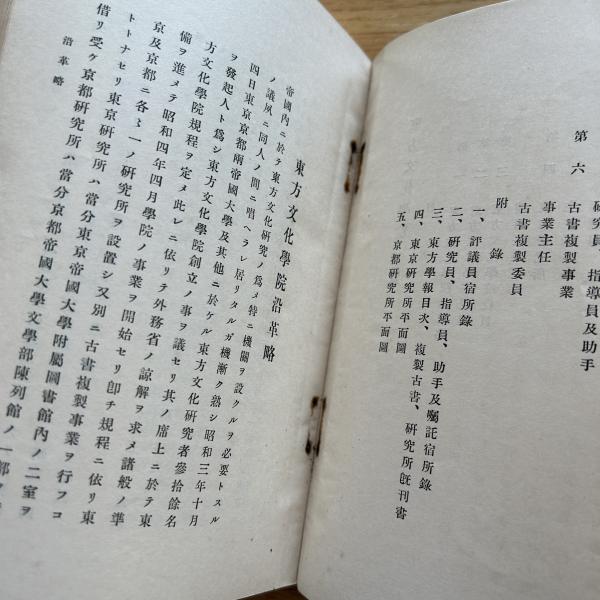 研究員、指導員及助手
第六
古書複製事業
事業主任
古書複製委員
附錄
一、評議員宿所錄
二、研究員、指導員、助手及囑託宿所錄
三、東方學報目次、複製古書、研究所旣刊書
四、東京研究所平面圖
五、京都研究所平面圖
東方文化學院沿革略
帝國內ニ於テ東方文化研究ノ爲メ特ニ機關ヲ設クルヲ必要トスル
ノ議夙ニ同人ノ間ニ唱ヘラレ居リタルガ機漸ク熟シ昭和三年十月
四日東京京都兩帝國大學及其他ニ於ケル東方文化研究者參拾餘名
ヲ發起人ト爲シ東方文化學院創立ノ事ヲ議セリ其ノ席上ニ於テ東
方文化學院規程ヲ定メ此レニ依リテ外務省ノ諒解ヲ求メ諸般ノ準
備ヲ進メテ昭和四年四月學院ノ事業ヲ開始セリ卽チ規程ニ依リ東
京及京都ニ各〻一ノ研究所ヲ設置シ又別ニ古書複製事業ヲ行フコ
トトナセリ東京研究所ハ當分東京帝國大學附屬圖書館內ノ二室ヲ
借リ受ケ京都研究所ハ當分京都帝國大學文學部陳列館ノ一部ヲ
沿革略